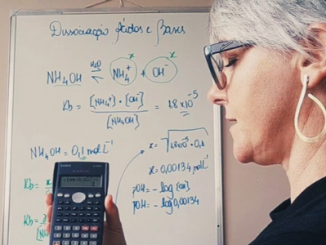 Dissociação Ácidos e Bases
NH₄OH ⇌ NH₄⁺ + OH⁻
H₂O
x x
Kb = [NH₄⁺]·[OH⁻] / [NH₄OH] = 1,8×10⁻⁵
NH₄OH = 0,1 mol L⁻¹
x = √1,8×10⁻⁵ · 0,1
x = 0,00134 mol L⁻¹
pOH = - log [OH]
pOH = - log 0,00134
Kb =